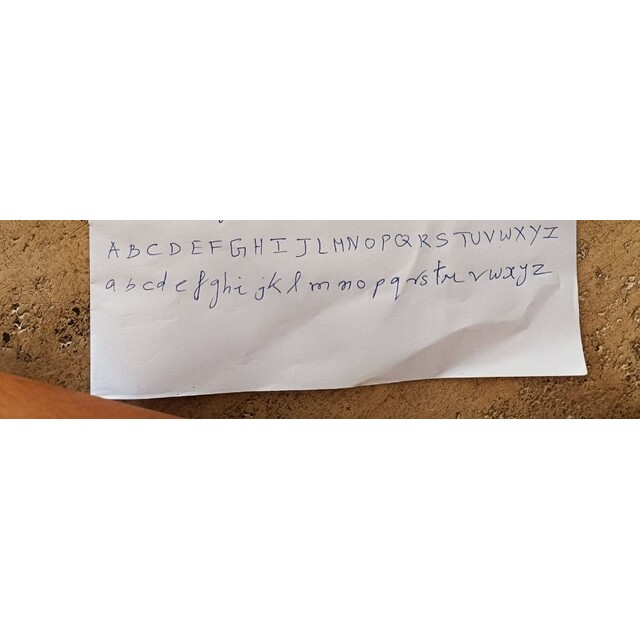 A B C D E F G H I J L M N O P Q R S T U V W X Y Z
a b c d e f g h i j k l m n o p q r s t u v w x y z